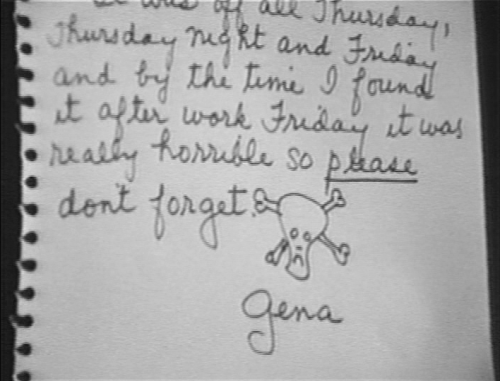 It was off all Thursday,
Thursday night and Friday
and by the time I found
it after work Friday it was
really horrible so please
don't forget.
Gena